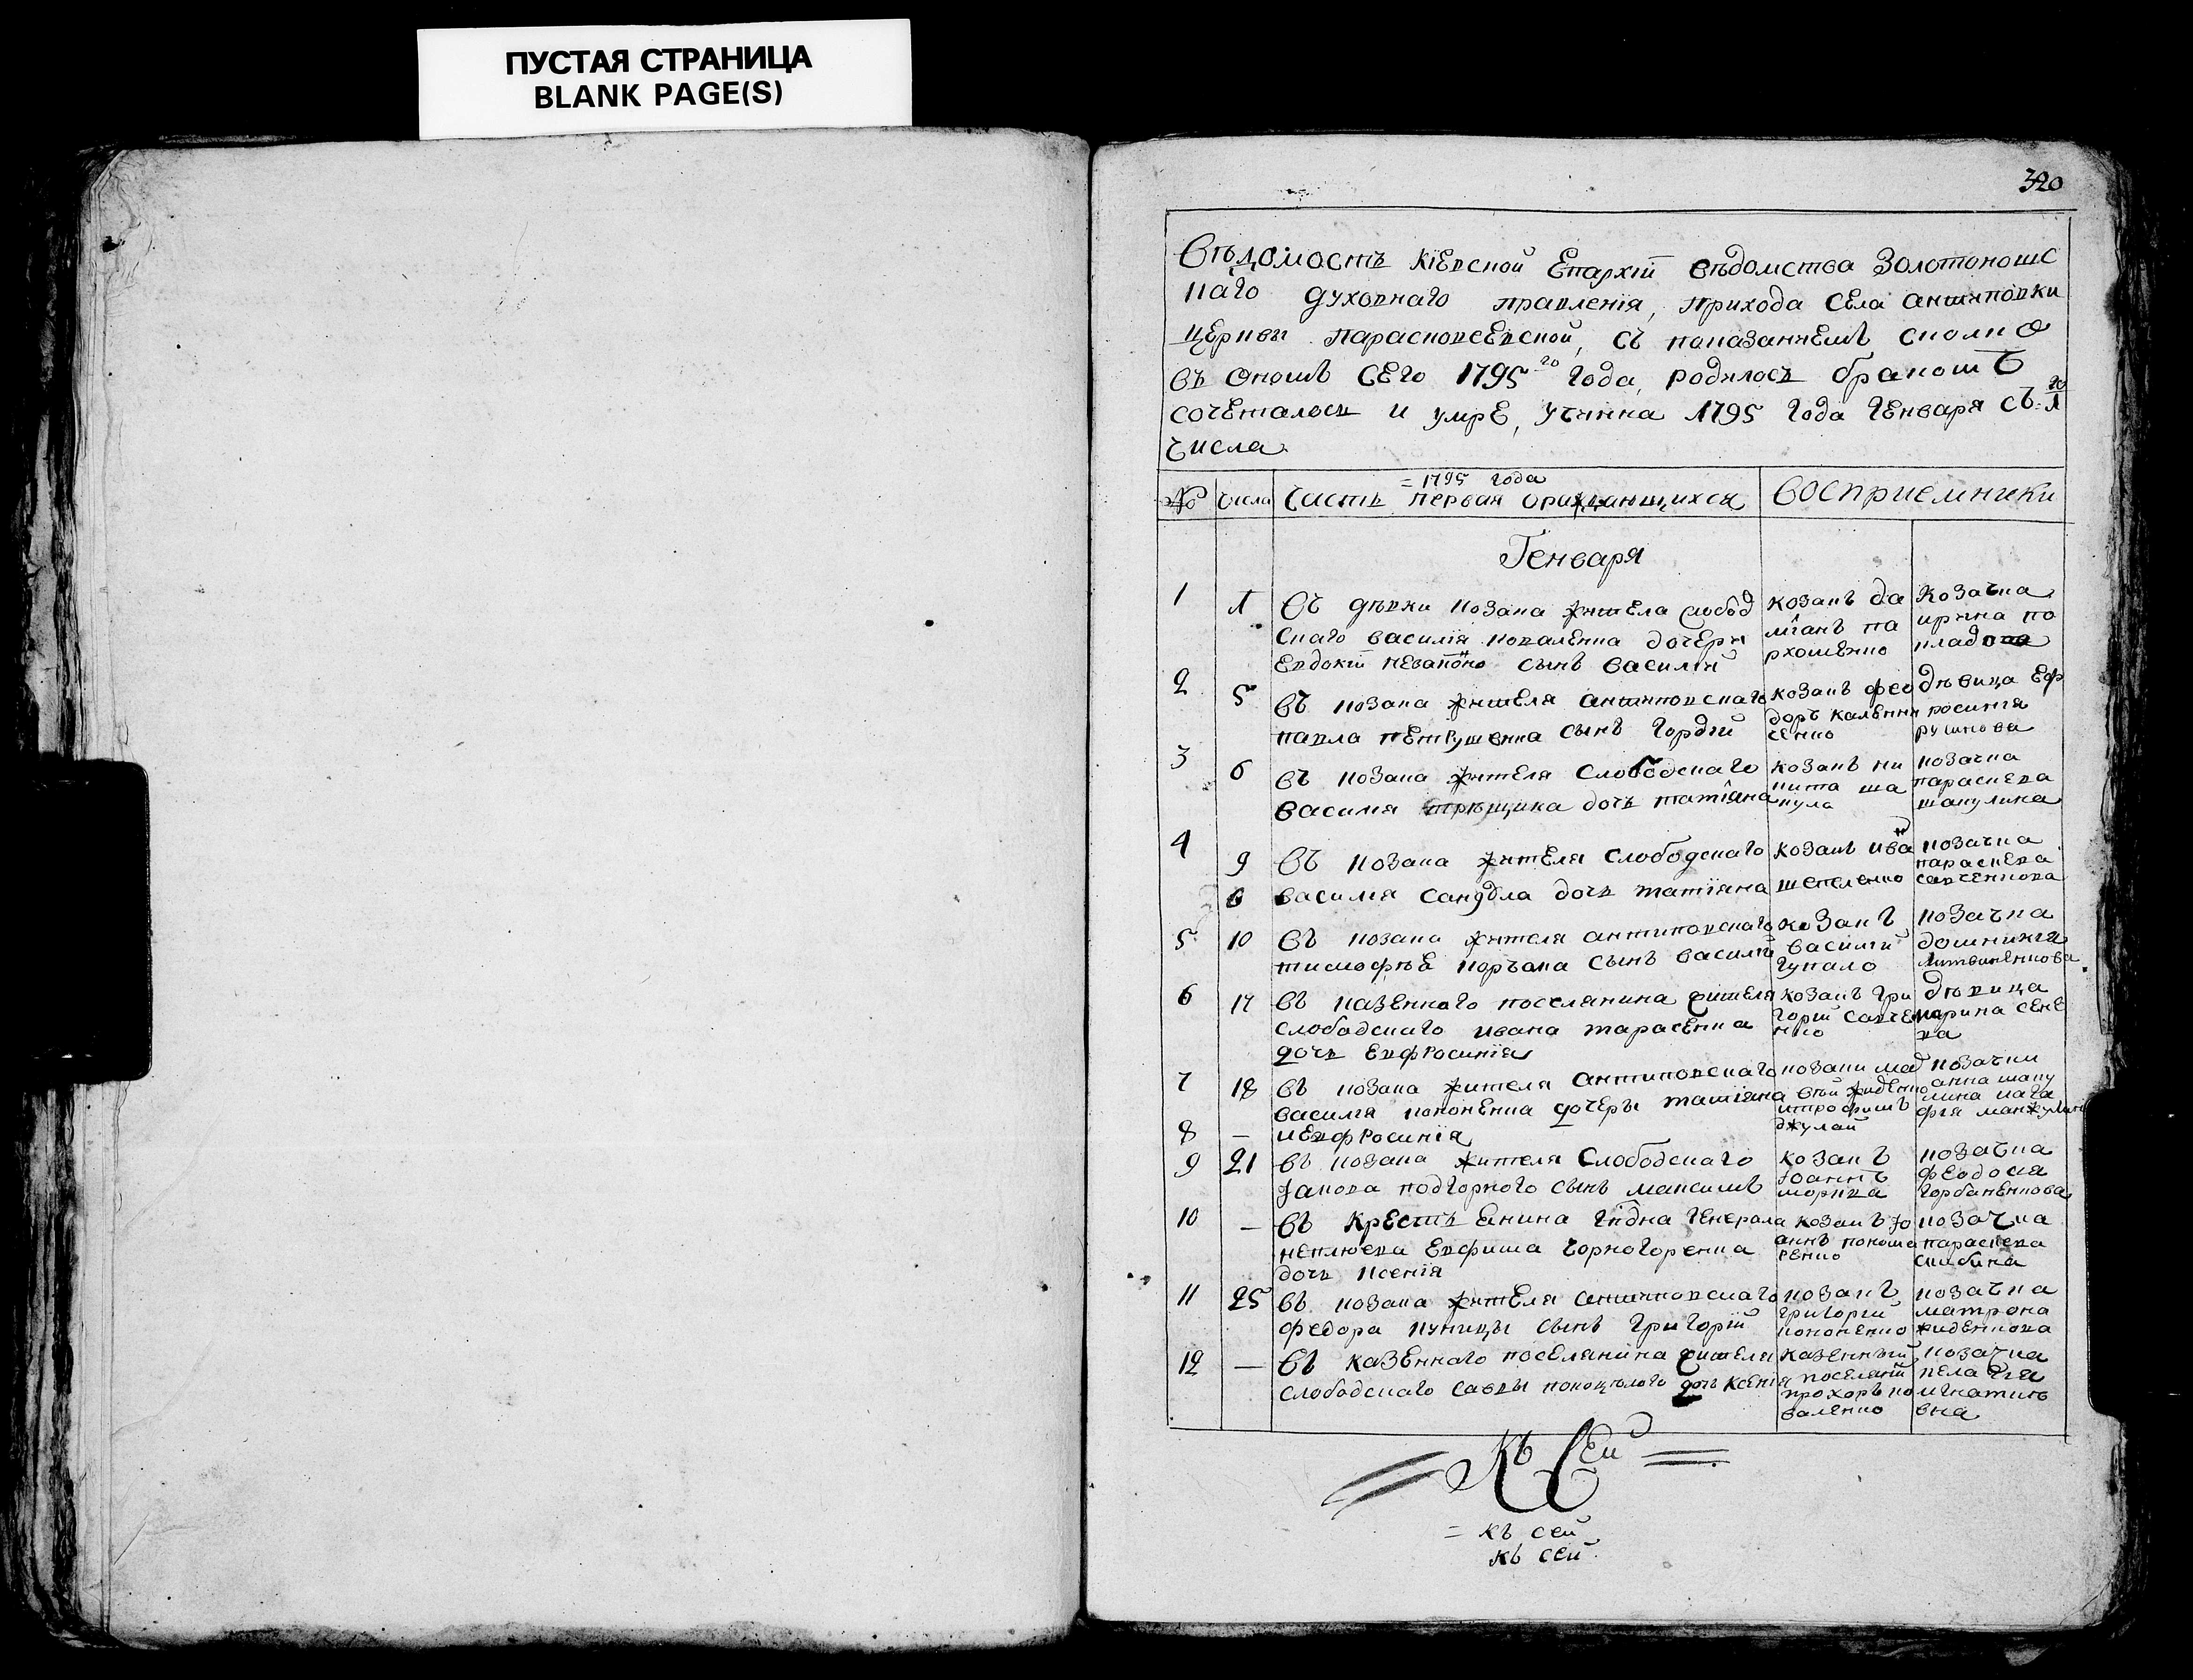 ПУСТАЯ СТРАНИЦА
BLANK PAGE(S)
320
Вѣдомость Кіевской Епархіи вѣдомства Золотоношс
каго духовнаго правленія, прихода Села антиповки
церкви Парасковеевской, съ показаниемъ сколко
въ ономъ сего 1795 го года, родилось бракомъ
сочеталось и умре, учинна 1795 года Генваря съ 1 го
числа
= 1795 года
№ числа Часть первая ораждающихся восприемники
Генваря
1 1 Въ дѣвки козака жителя слобод
скаго василія коваленка дочери
Евдокіи незаконо сынъ василій
козакъ да
міанъ па
рхоменко
козачка
ирина по
кладо
2 5 Въ козака жителя антиповскаго
павла петрушенка сынъ Гордій
козакъ фео
доръ калени
ченко
дѣвица Еф
росинія
рушкова
3 6 Въ козака жителя Слободскаго
василия трѣщика дочь татіана
козакъ ни
кита ша
кула
козачка
параскева
шакулина
4 9 Въ козака жителя слободскаго
василия дочь татіана
козакъ иван
шепленко
козачка
параскева
савченкова
5 10 Въ козака жителя антиповскаго
тимофѣя коръака сынъ василій
козакъ
василий
чупало
козачка
домникия
литвиненкова
6 17 Въ казенного поселянина жителя
слободскаго ивана тарасенка
дочь Евфросинія
козакъ гри
горій савче
нко
дѣвица
марина сене
ва
7 18 Въ козака жителя антиповскаго
василия кононенка дочеры татіана
8 — иЕвфросинія
козаки мат
вѣй жиденко
итрофимъ
джулай
козачки
анна шаку
лина иага
фия манжулина
9 21 Въ козака жителя Слободскаго
Iакова подгорного сынъ максимъ
козакъ
Iоаннъ
морква
козачка
феодосия
горбаненкова
10 — Въ Крестьянина Гпдна Генерала
неплюева Евфима чорногоренка
дочь ксенія
козакъ Iо
аннъ
козачка
параскева
скибина
11 25 Въ козака жителя антиповскаго
федора куницы сынъ Григорій
козакъ
григорій
кононенко
козачка
матрона
жиденкова
12 — Въ казенного поселянина жителя
слободскаго савы дочь ксенія
казенный
поселянин
прохоръ ко
валенко
козачка
пелагия
игнатию
вна
Къ Сей
= къ сей
къ сей